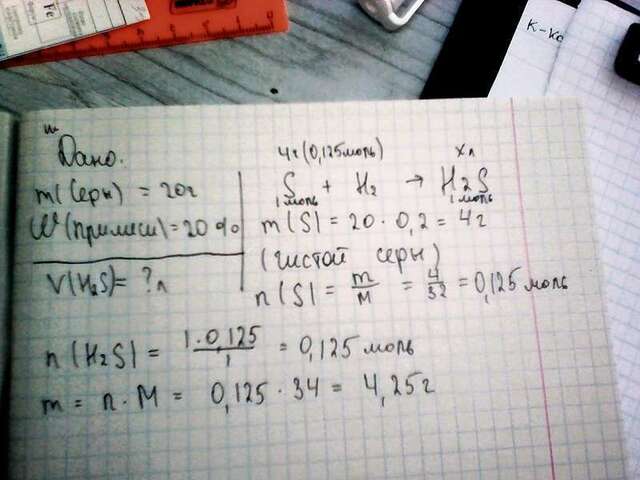 Fe
K-ка
Дано.
m(серы) = 20г
W(примеси) = 20%
V(H2S) = ?л
4г (0,125моль) xл
S + H2 → H2S
1моль 1моль
m(S) = 20 · 0,2 = 4г
(чистой серы)
n(S) = m/M = 4/32 = 0,125 моль
n(H2S) = 1·0,125/1 = 0,125 моль
m = n · M = 0,125 · 34 = 4,25г